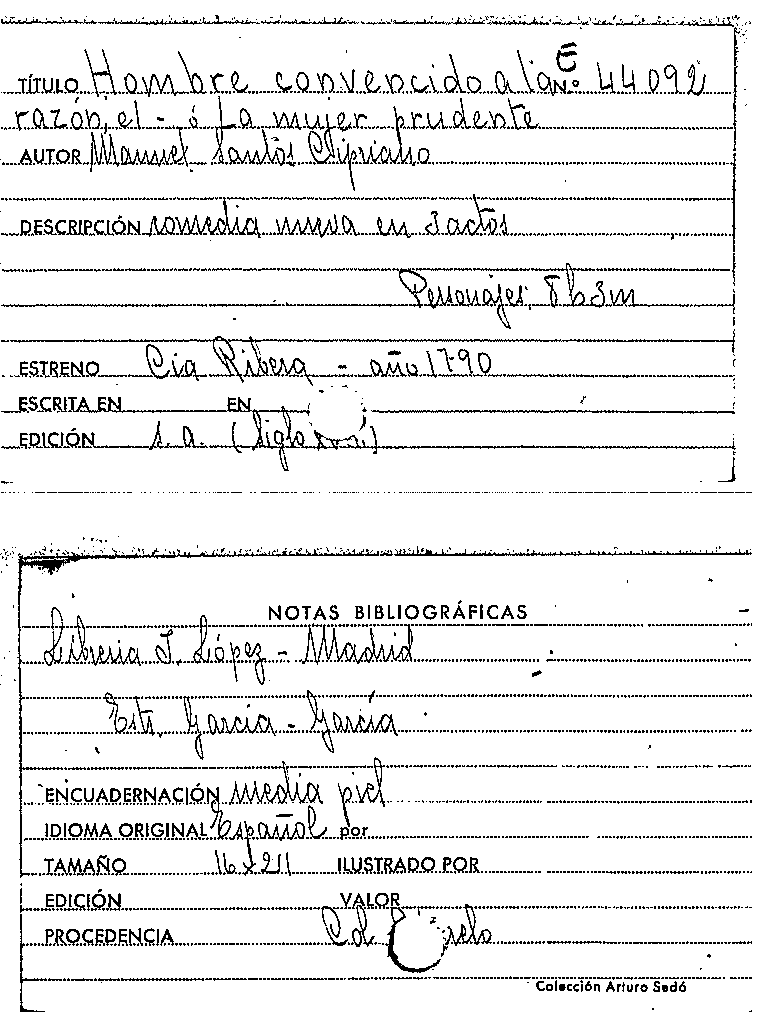 E
TÍTULO Hombre convencido a la Nº 44092
razón, el - ó La mujer prudente
AUTOR Manuel Santos Cipriano
DESCRIPCIÓN comedia nueva en 3 actos
Personajes, 8 h 3 m
ESTRENO Cia Ribera - año 1790
ESCRITA EN EN
EDICIÓN s. a. (Siglo
NOTAS BIBLIOGRÁFICAS
Libreria J. López - Madrid
Garcia - Garcia
ENCUADERNACIÓN media piel
IDIOMA ORIGINAL Español por
TAMAÑO 16 x 211 ILUSTRADO POR
EDICIÓN VALOR
PROCEDENCIA Col.
Colección Arturo Sedó